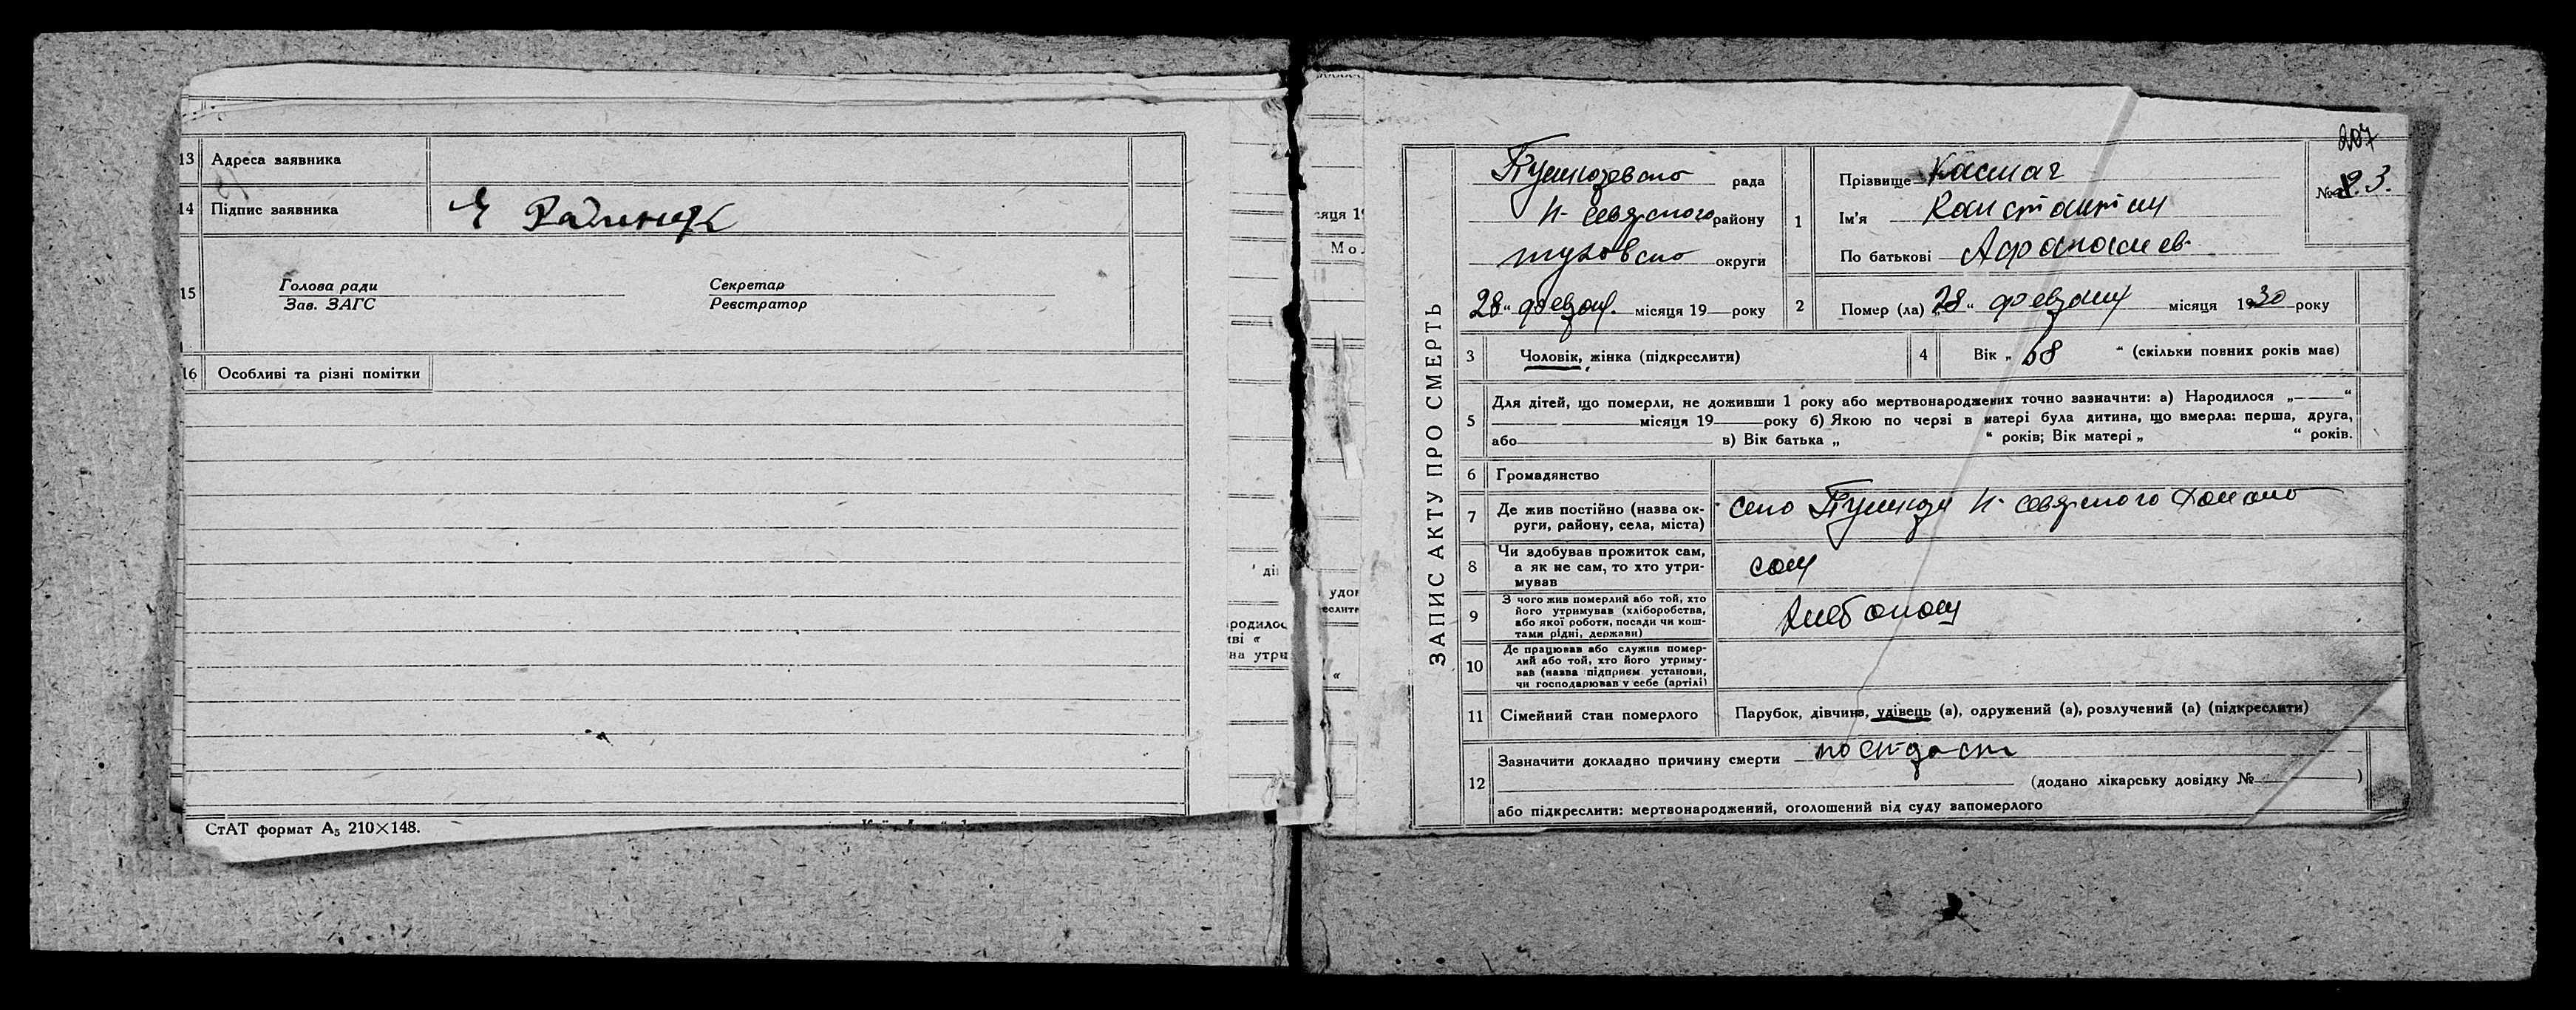 13 Адреса заявника
14 Підпис заявника
15 Голова ради Секретар
Зав. ЗАГС Реєстратор
16 Особливі та різні помітки
СтАТ формат А₅ 210×148.
сяця 19
Мо
ді
удов
родилос
иві «
на утри
207
ЗАПИС АКТУ ПРО СМЕРТЬ
рада
Н- севрского району
округи
28 " феврал. місяця 19 року
1 Прізвище
Ім'я Константин
По батькові Афанасиев-
№ 23.
2 Помер (ла) "28 " февраля місяця 1930 року
3 Чоловік, жінка (підкреслити)
4 Вік „ 68 " (скільки повних років має)
5 Для дітей, що померли, не доживши 1 року або мертвонароджених точно зазначити: а) Народилося „ "
місяця 19 року б) Якою по черзі в матері була дитина, що вмерла: перша, друга,
або в) Вік батька „ " років; Вік матері „ " років.
6 Громадянство
7 Де жив постійно (назва ок-
руги, району, села, міста) село Н- севрского
8 Чи здобував прожиток сам,
а як не сам, то хто утри-
мував сам
9 З чого жив померлий або той, хто
його утримував (хліборобства,
або якої роботи, посади чи кош-
тами рідні, держави)
10 Де працював або служив помер-
лий або той, хто його утриму-
вав (назва підприєм установи,
чи господарював у себе (артілі)
11 Сімейний стан померлого Парубок, дівчина, удівець (а), одружений (а), розлучений (а) (підкреслити)
12 Зазначити докладно причину смерти
(додано лікарську довідку № )
або підкреслити: мертвонароджений, оголошений від суду запомерлого